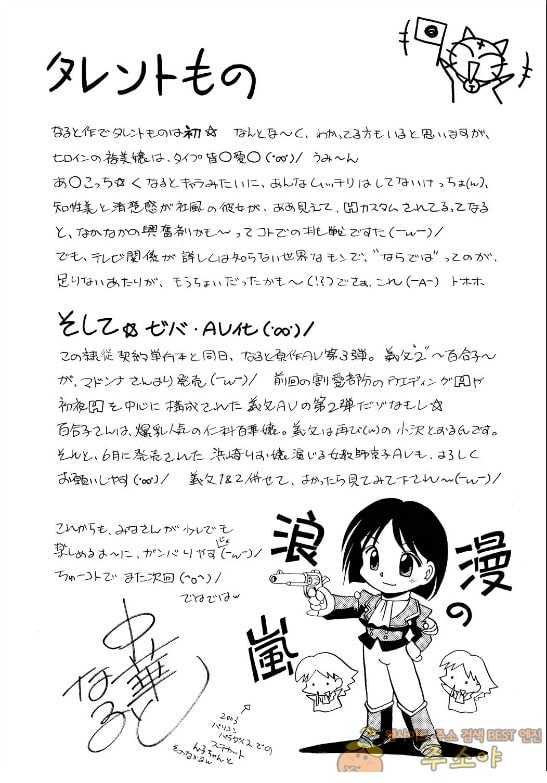 タレントもの
なると作でタレントものは初☆ なんとな〜く、わかってる方もいると思いますが、
ヒロインの裕美嬢は、タイプ皆〇愛〇(･∞･)/ うみ〜ん
あ〇こっち☆くなるとキャラみたいに、あんなしっかりはしてないけっちょ(ω)、
知性美と清楚感が社風の彼女が、ああ見えて、
と、なかなかの興奮剤かも〜ってコトでの挑戦ですた(ーωー)/
でも、テレビ関係が詳しくは知らない世界なモンで、"ならでは"ってのが、
足りないあたりが、もうちょいだったかも〜(!?)でてぁ、これ(ーAー) トホホ
そして☆ゼバ・AV化(･∞･)/
この隷従契約単行本と同日、なると原作AV第3弾。義父"2"〜百合子〜
が、マドンナさんより発売(ーωー)/ 前回の割愛者防のウエディング
初夜 を中心に構成された義父AVの第2弾だゾなもし☆
百合子さんは、爆乳人気の仁科百華嬢。義父は再び(ω)の小沢とおるんです。
それと、6月に発売された浜崎りお嬢演じる女教師京子AVも、よろしく
お願いしやす(･∞･)/ 義父1&2併せて、よかったら見てみて下され〜(ーωー)/
これからも、みなさんが少しでも
楽しめるよ〜に、ガンバりやすじぇ(ーωー)/
ちゅーコトでまた次回(^o^)/
でわでわω
浪漫の嵐
中華なると
2003
ステカート
주소야